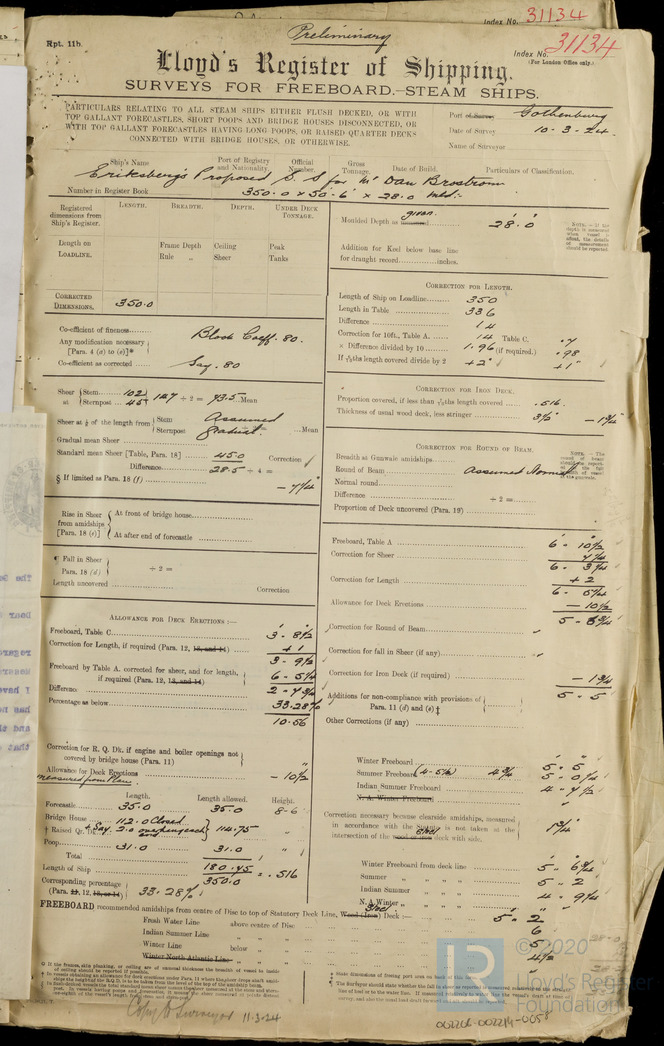 Index No. 31134
Preliminary
Rpt. 11b.
Index No. 31134
(For London Office only.)
Lloyd's Register of Shipping.
SURVEYS FOR FREEBOARD.—STEAM SHIPS.
PARTICULARS RELATING TO ALL STEAM SHIPS EITHER FLUSH DECKED, OR WITH
TOP GALLANT FORECASTLES, SHORT POOPS AND BRIDGE HOUSES DISCONNECTED, OR
WITH TOP GALLANT FORECASTLES HAVING LONG POOPS, OR RAISED QUARTER DECKS
CONNECTED WITH BRIDGE HOUSES, OR OTHERWISE.
Port of Survey Gothenburg
Date of Survey 10-3-24.
Name of Surveyor
Ship's Name Port of Registry and Nationality. Official Number. Gross Tonnage. Date of Build. Particulars of Classification.
Eriksberg's Proposed S.S. for Mr Dan Brostrom
Number in Register Book 350.0 x 50'-6" x 28.0 mld:-
Registered dimensions from Ship's Register. LENGTH. BREADTH. DEPTH. UNDER DECK TONNAGE.
Length on LOADLINE. Frame Depth Rule " Ceiling Sheer Peak Tanks
CORRECTED DIMENSIONS. 350.0
Co-efficient of fineness Block Coeff. 80.
Any modification necessary [Para. 4 (a) to (e)]*
Co-efficient as corrected Say .80
Sheer at Stem 102 Sternpost 45 147 ÷ 2 = 73.5 Mean
Sheer at 1/8 of the length from Stem Sternpost Assumed gradual. Mean
Gradual mean Sheer
Standard mean Sheer [Table, Para. 18] 45.0 Correction
Difference 28.5 ÷ 4 =
§ If limited as Para. 18 (f) - 7 1/4
Rise in Sheer from amidships [Para. 18 (e)] At front of bridge house
At after end of forecastle
¶ Fall in Sheer Para. 18 (d) ÷ 2 =
Length uncovered Correction
ALLOWANCE FOR DECK ERECTIONS :—
Freeboard, Table C 3 - 8 1/2
Correction for Length, if required (Para. 12, 13, and 14) + 1
3 - 9 1/2
Freeboard by Table A. corrected for sheer, and for length, if required (Para. 12, 13, and 14) 6 - 5 1/4
Difference 2 - 7 3/4
Percentage as below 33.28%
10.56
Correction for R. Q. Dk. if engine and boiler openings not covered by bridge house (Para. 11)
Allowance for Deck Erections - 10 1/2
measured from Plan.
Length. Length allowed. Height.
Forecastle 35.0 35.0 8-6
Bridge House 112.0 Closed
† Raised Qr. Dk. + Say 2.0 overhang each end 114.75
Poop 31.0 31.0
Total 180.75
Length of Ship 350.0 = .516
Corresponding percentage (Para. 11, 12, 13, or 14) 33.28%
Moulded Depth as given 28.0
Addition for Keel below base line for draught record inches.
CORRECTION FOR LENGTH.
Length of Ship on Loadline 350
Length in Table 336
Difference 14
Correction for 10ft., Table A. 1.4 Table C. .7
× Difference divided by 10 1.96 (if required.) .98
If 6/10ths length covered divide by 2 +2" +1"
CORRECTION FOR IRON DECK.
Proportion covered, if less than 7/10ths length covered .516
Thickness of usual wood deck, less stringer 3 1/2 - 1 3/4
CORRECTION FOR ROUND OF BEAM.
Breadth at Gunwale amidships
Round of Beam Assumed Normal
Normal round
Difference ÷ 2 =
Proportion of Deck uncovered (Para. 19)
Freeboard, Table A 6 - 10 1/2
Correction for Sheer 7 1/4
6 - 3 1/4
Correction for Length + 2
6 - 5 1/4
Allowance for Deck Erections - 10 1/2
5 - 6 3/4
Correction for Round of Beam
Correction for fall in Sheer (if any)
Correction for Iron Deck (if required) - 1 3/4
5 - 5
Additions for non-compliance with provisions of Para. 11 (d) and (e) ‡
Other Corrections (if any)
Winter Freeboard 5 - 5
Summer Freeboard (4-5 1/2) 4 3/4 5 - 0 1/4
Indian Summer Freeboard 4 - 7 1/2
N. A. Winter Freeboard
Correction necessary because clearside amidships, measured in accordance with the Statute is not taken at the intersection of the steel deck with side. 1 3/4
Winter Freeboard from deck line 5 - 6 3/4
Summer " " " " 5 - 2
Indian Summer " " " " 4 - 9 1/4
N.A. Winter " " " "
FREEBOARD recommended amidships from centre of Disc to top of Statutory Deck Line, Wood (Iron) Steel Deck :— 5 - 2
Fresh Water Line above centre of Disc 6
Indian Summer Line " " " 5
Winter Line below " " 4 1/2
Winter North Atlantic Line " " "
Copy to Surveyor 11.3.24
© 2020
LR
Lloyd's Register
Foundation
002206-002214-0058